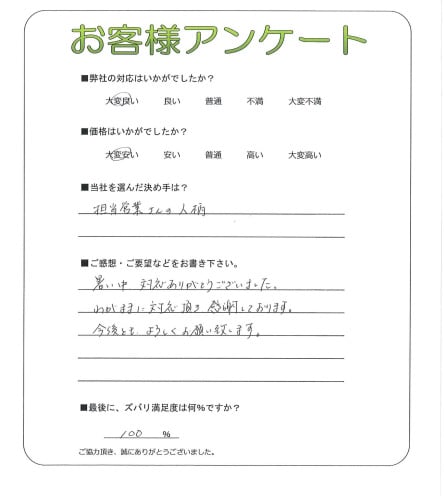 お客様アンケート
■弊社の対応はいかがでしたか?
大変良い 良い 普通 不満 大変不満
■価格はいかがでしたか?
大変安い 安い 普通 高い 大変高い
■当社を選んだ決め手は?
担当営業さんの人柄
■ご感想・ご要望などをお書き下さい。
暑い中 対応ありがとうございました。
わがままに対応頂き感謝しております。
今後とも よろしくお願い致します。
■最後に、ズバリ満足度は何%ですか?
100 %
ご協力頂き、誠にありがとうございました。